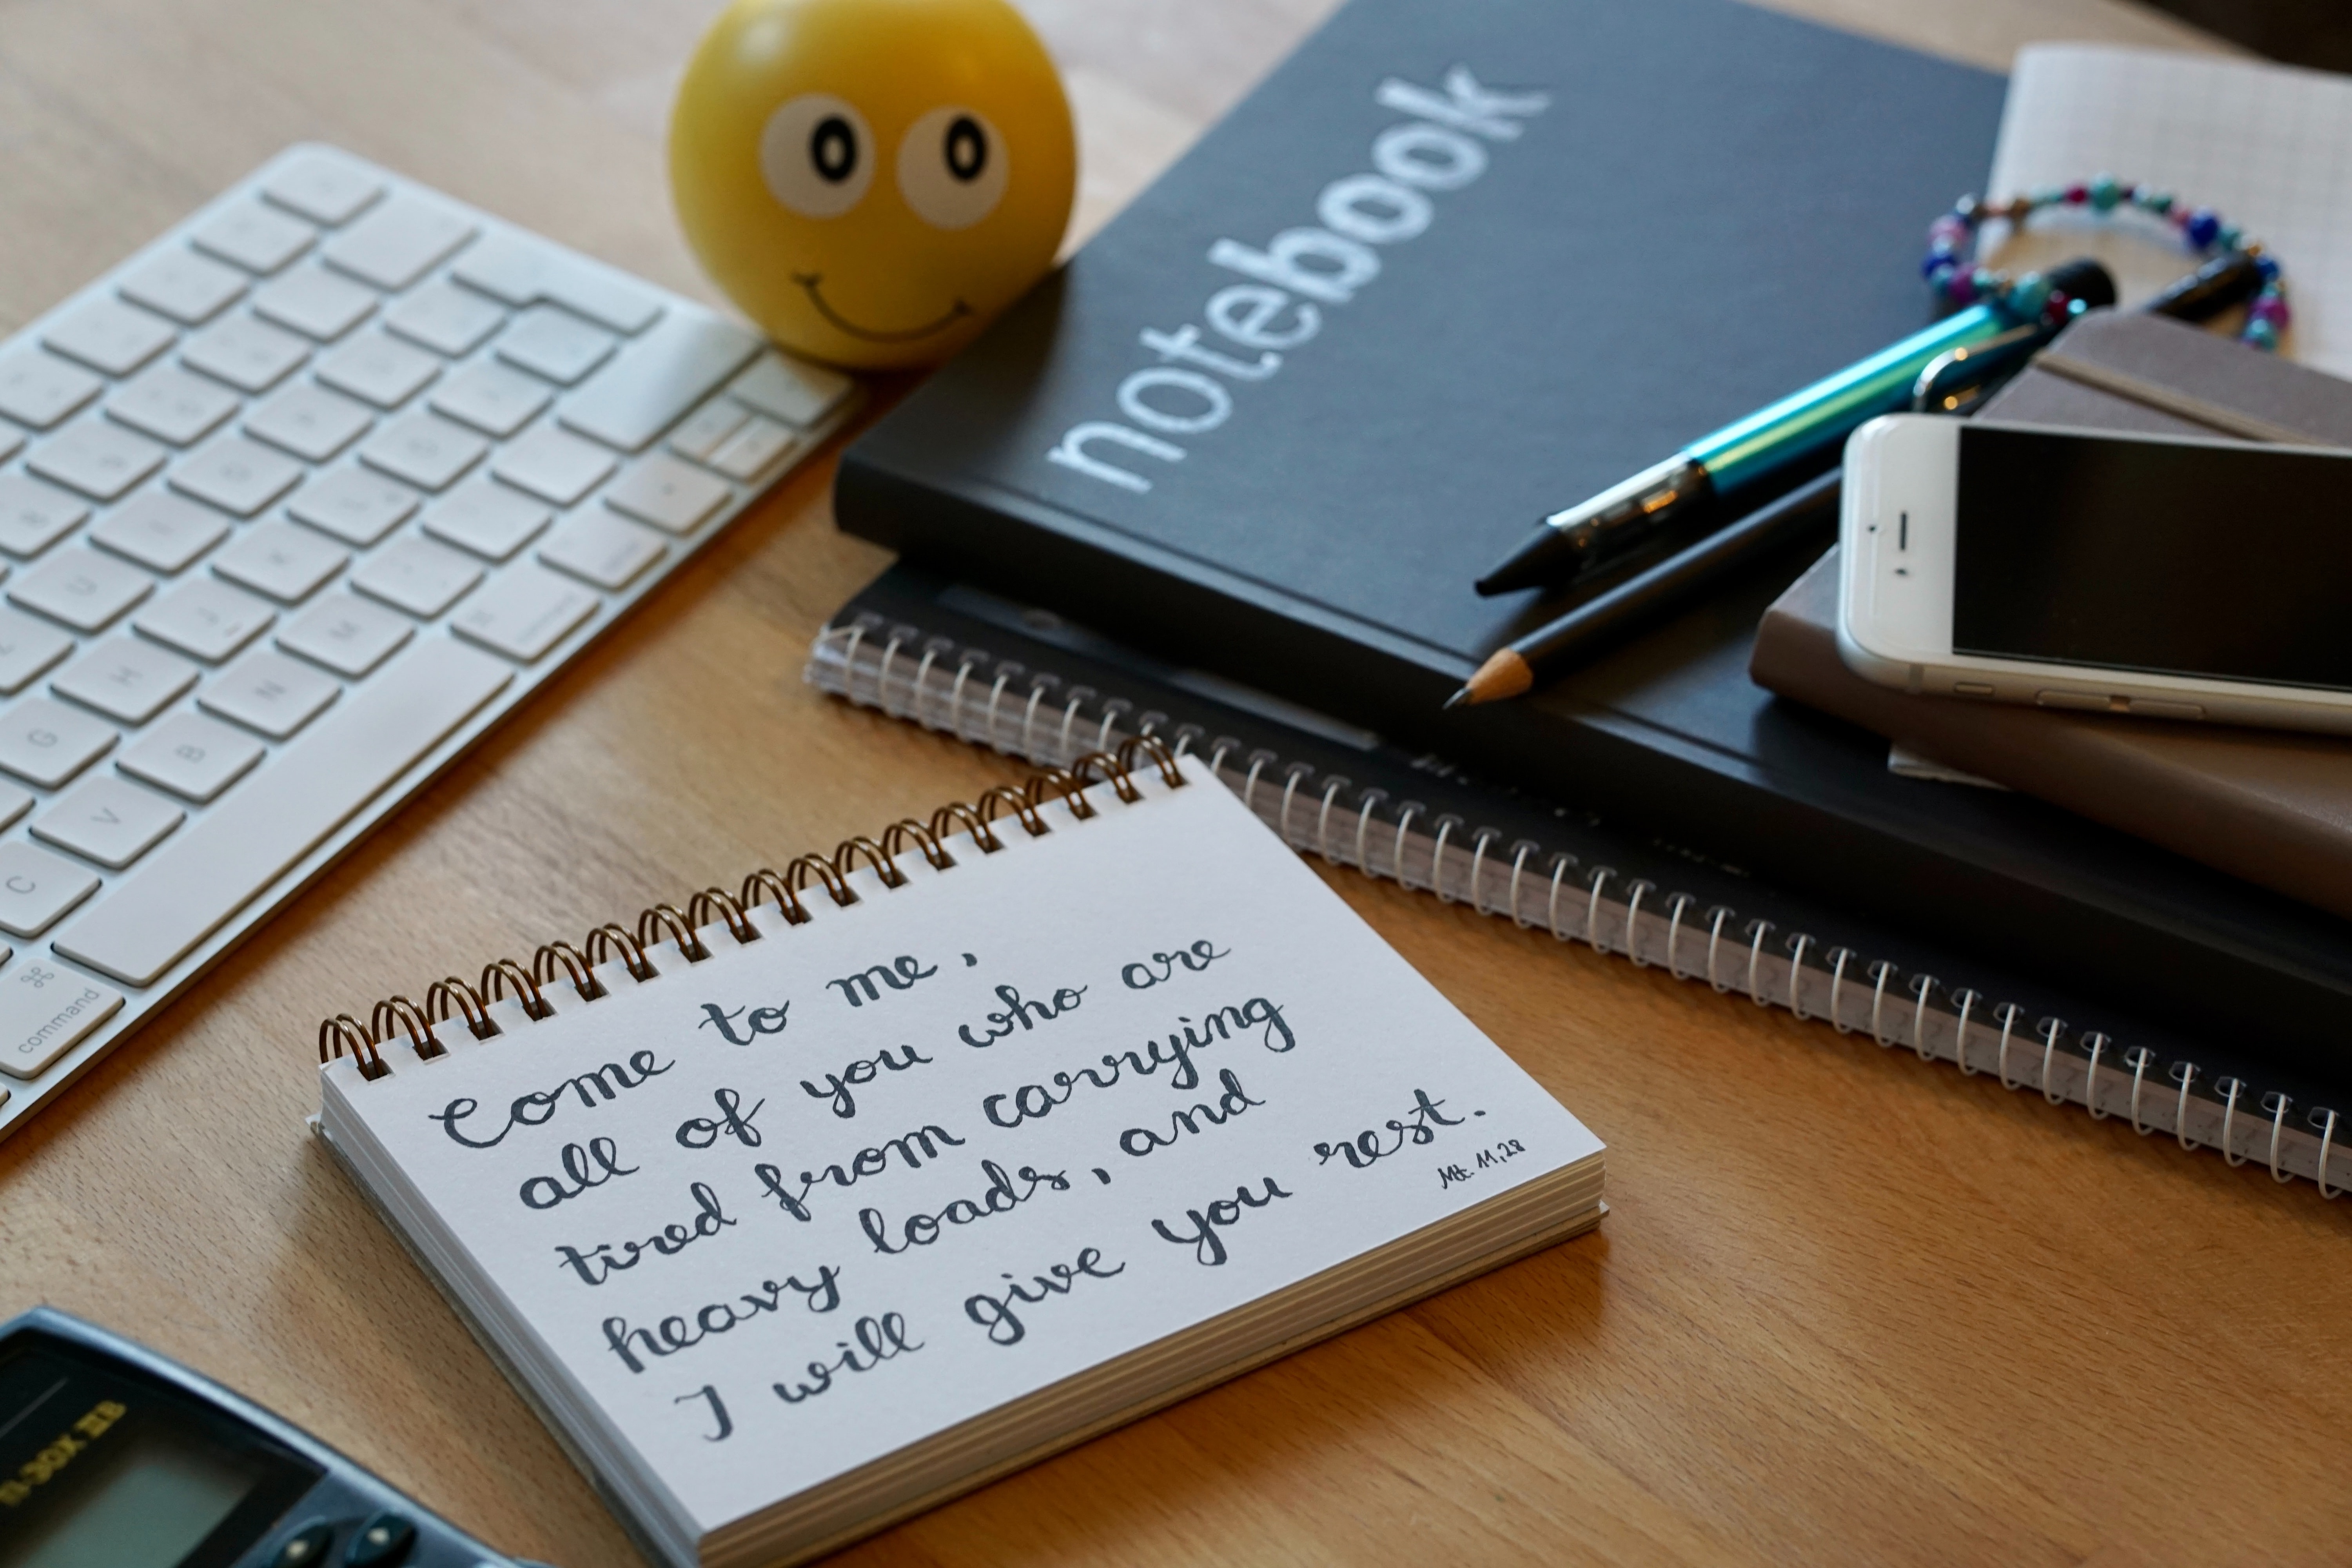 notebook
U
J
M
H
N
G
B
V
C
⌘
command
Come to me,
all of you who are
tired from carrying
heavy loads, and
I will give you rest.
Mt. 11,28